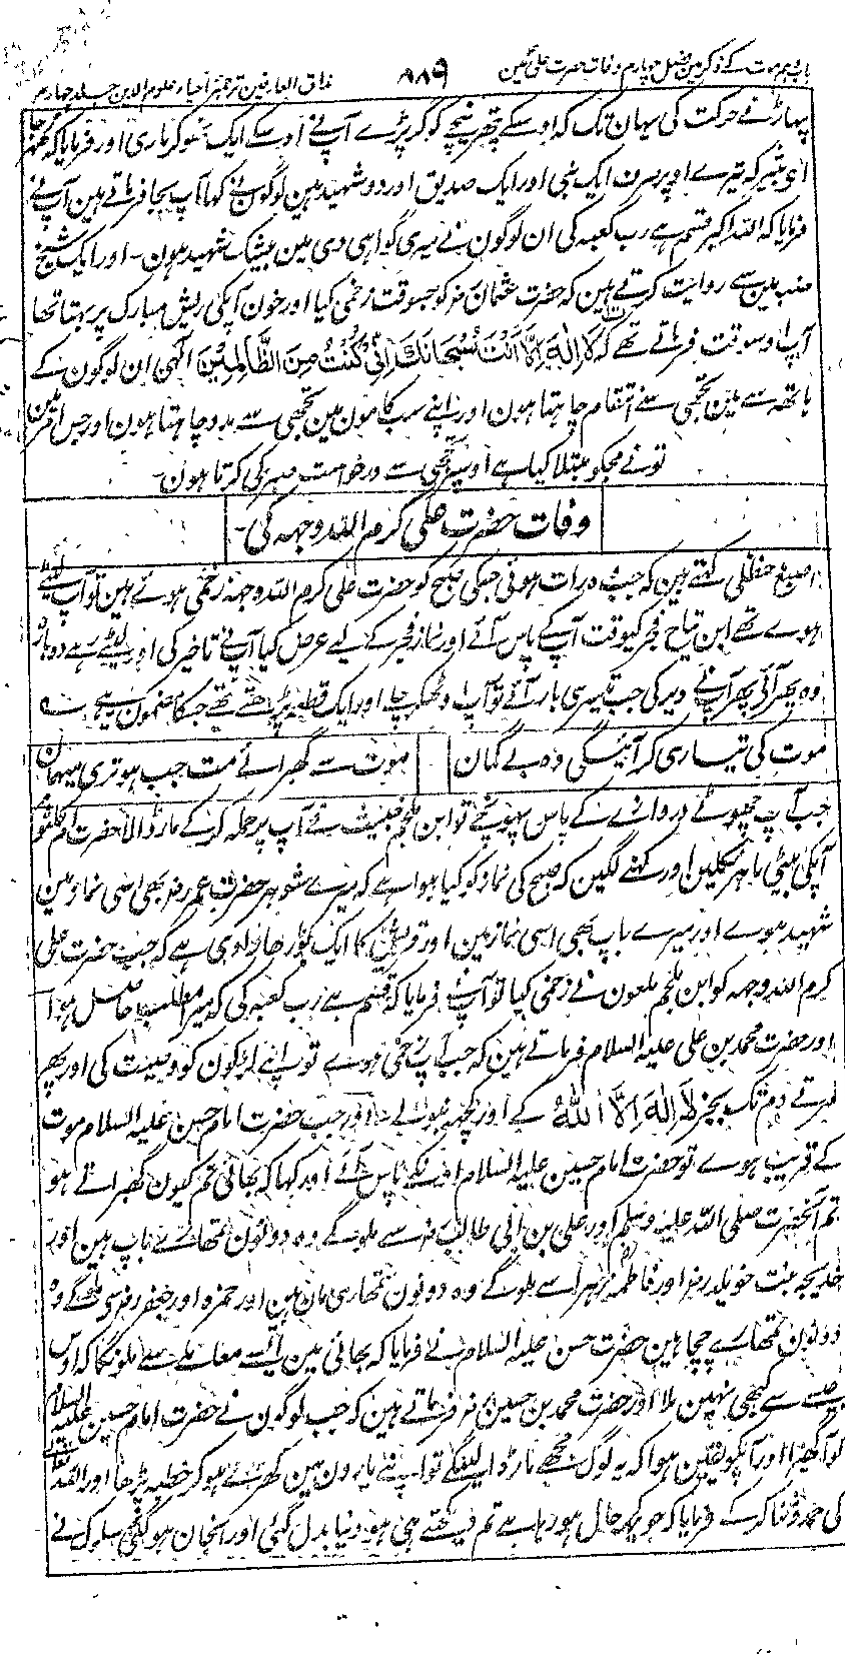 باب دہم موت کے ذکر مین فصل چہارم وفات حضرت علی مین
۸۸۹
مذاق العارفین ترجمہ احیاء علوم الدین جلد چہارم
پہاڑ نے حرکت کی یہان تک کہ اوسکے پتھر نیچے کو گر پڑے آپ نے اوسکے ایک ٹھوکر ماری اور فرمایا کہ ٹھہر جا
ای ثبیر کہ تیرے اوپر صرف ایک نبی اور ایک صدیق اور دو شہید ہین لوگون نے کہا آپ بجا فرماتے ہین آپ نے
فرمایا کہ اللہ اکبر قسم ہے رب کعبہ کی ان لوگون نے میری گواہی دی مین بیشک شہید ہون ۔ اور ایک شیخ
ضبہ مین سے روایت کرتے ہین کہ حضرت عثمان رضہ کو جسوقت زخمی کیا اور خون آپکی ریش مبارک پر بہتا تھا
آپ اوسوقت فرماتے تھے کہ لَا اِلٰهَ اِلَّا اَنْتَ سُبْحَانَكَ اِنِّیْ كُنْتُ مِنَ الظَّالِمِیْنَ الٰہی ان لوگون کے
ہاتھ سے مین تجھی سے انتقام چاہتا ہون اور اپنے سب کامون مین تجھی سے مدد چاہتا ہون اور جس امر مین
تو نے مجکو مبتلا کیا ہے اوسپر تجھی سے درخواست صبر کی کرتا ہون ۔
وفات حضرت علی کرم اللہ وجہہ کی ۔
اصبغ حنظلی کہتے ہین کہ جب وہ رات ہوئی جسکی صبح کو حضرت علی کرم اللہ وجہہ زخمی ہوئے ہین تو آپ لیٹے
ہوے تھے ابن تیاح فجر کیوقت آپ کے پاس آئے اور نماز فجر کے لیے عرض کیا آپ نے تاخیر کی اور لیٹے رہے دوبارہ
وہ پھر آئے پھر آپ نے دیر کی جب تیسری بار آئے تو آپ اوٹھکر چلے اور ایک قطعہ پڑھتے تھے جسکا مضمون یہ ہے ۔
موت کی تیاری کر آئیگی وہ بے گمان
موت سے گھبرائے مت جب ہو تری میہمان
جب آپ چھوٹے دروازے کے پاس پہونچے تو ابن ملجم خبیث نے آپ پر حملہ کر کے مار ڈالا حضرت ام کلثوم
آپکی بیٹی باہر نکلین اور کہنے لگین کہ صبح کی نماز کو کیا ہوا ہے کہ میرے شوہر حضرت عمر رضہ بھی اسی نماز مین
شہید ہوے اور میرے باپ بھی اسی نماز مین اور قریش کا ایک بوڑھا راوی ہے کہ جب حضرت علی
کرم اللہ وجہہ کو ابن ملجم ملعون نے زخمی کیا تو آپ نے فرمایا کہ قسم ہے رب کعبہ کی کہ میرا مطلب حاصل ہوا
اور حضرت محمد بن علی علیہ السلام فرماتے ہین کہ جب آپ زخمی ہوے تو اپنے لڑکون کو وصیت کی اور پھر
مرتے دم تک بجز لَا اِلٰهَ اِلَّا اللهُ کے اور کچھ نہ بولے ۔ اور جب حضرت امام حسن علیہ السلام موت
کے قریب ہوے تو حضرت امام حسین علیہ السلام اونکے پاس گئے اور کہا کہ بھائی تم کیون گھبراتے ہو
تم آنحضرت صلی اللہ علیہ وسلم اور علی بن ابی طالب رضہ سے ملوگے وہ دونون تمھارے باپ ہین اور
خدیجہ بنت خویلد رضہ اور فاطمہ زہرا سے ملوگے وہ دونون تمھاری مان ہین اور حمزہ اور جعفر رضہ سے ملوگے وہ
دونون تمھارے چچا ہین حضرت حسن علیہ السلام نے فرمایا کہ بھائی مین ایسے معاملے سے ملونگا کہ اوس
جیسے سے کبھی نہین ملا اور حضرت محمد بن حسین رضہ فرماتے ہین کہ جب لوگون نے حضرت امام حسین علیہ السلام
کو آ گھیرا اور آپکو یقین ہوا کہ یہ لوگ مجھے مار ڈالینگے تو اپنے یارون مین کھڑے ہو کر خطبہ پڑھا اور اللہ تعالیٰ
کی حمد و ثنا کر کے فرمایا کہ جو کچھ حال ہو رہا ہے تم دیکھتے ہی ہو دنیا بدل گئی اور انجان ہو گئی سلوک نے